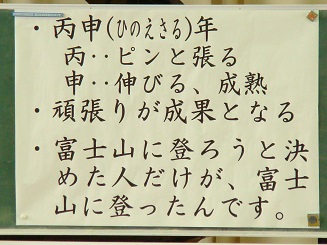 ・丙申(ひのえさる)年
丙‥ピンと張る
申‥伸びる、成熟
・頑張りが成果となる
・富士山に登ろうと決
めた人だけが、富士
山に登ったんです。